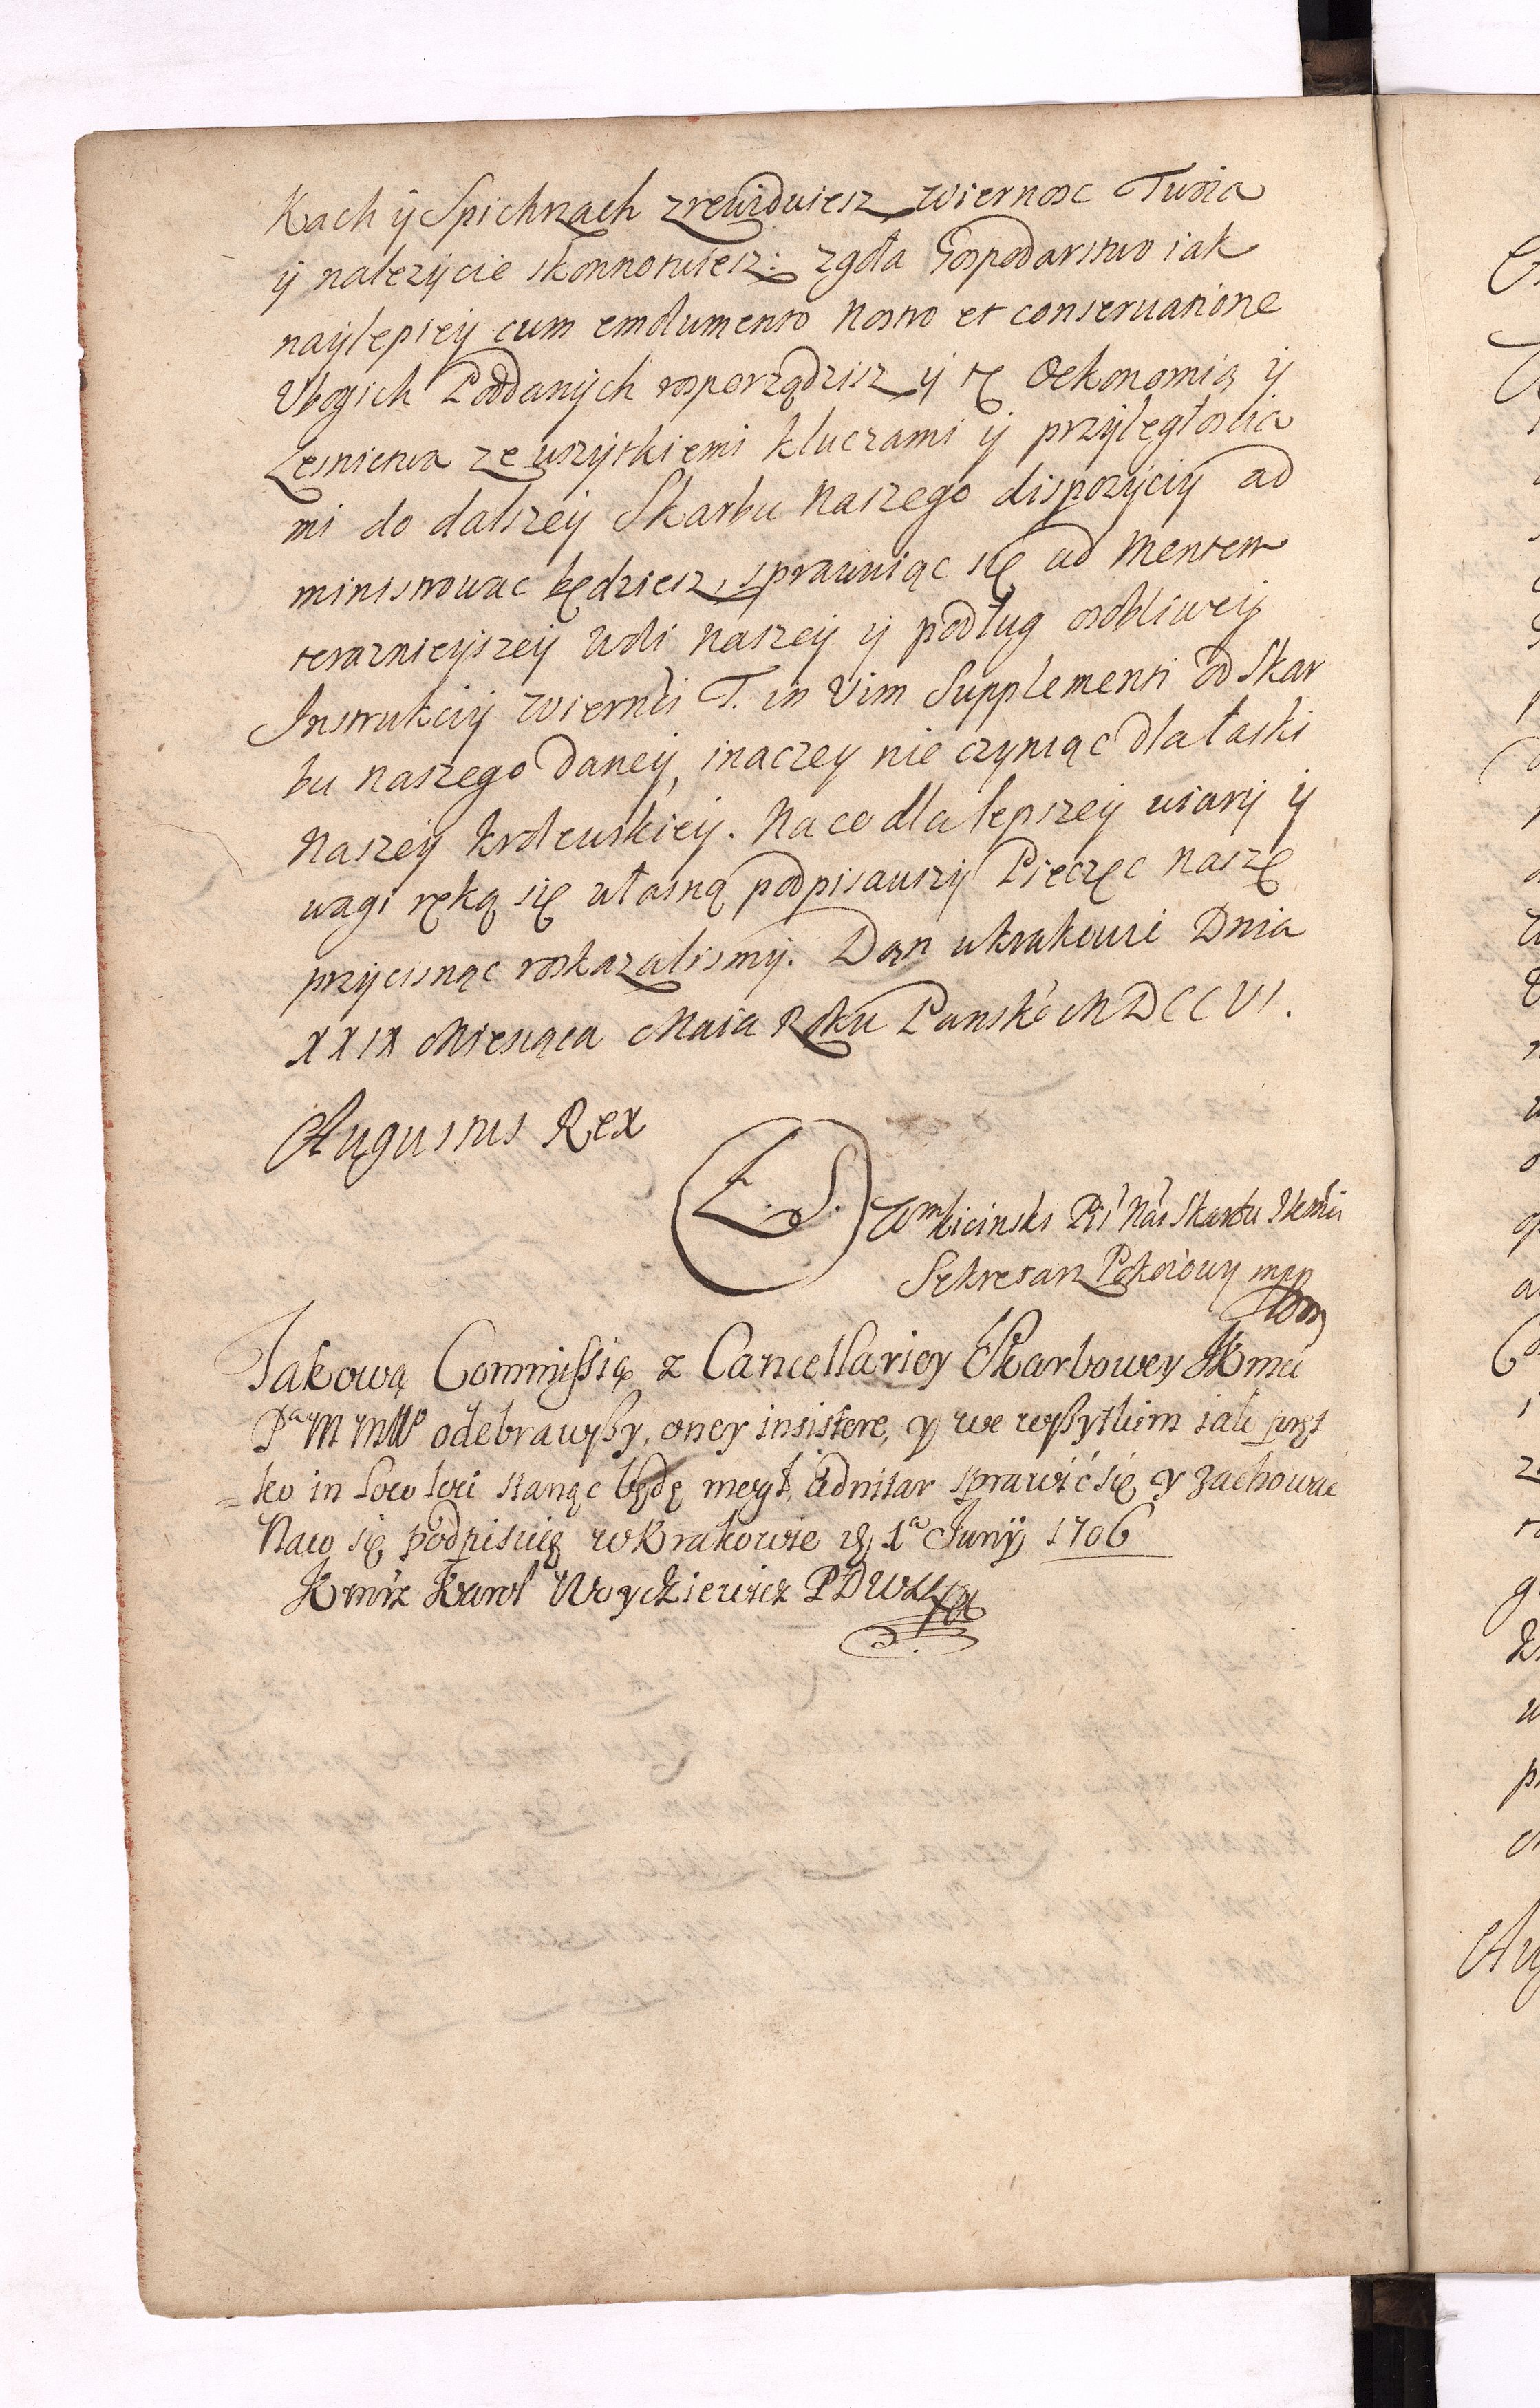 Kach ÿ Spichrzach zrewiduiesz wiernosc Twoia
ÿ nalezÿcie skonnotuiesz: zgoła Gospodarstwo iak
naÿlepieÿ cum emolumento Nostro et conseruatione
Vbogich Poddanÿch rosporządzisz ÿ tę Oekonomią ÿ
Lesnictwa ze wszÿtkiemi kluczami ÿ przÿległoscia
mi do dalszeÿ Skarbu Naszego dispozÿciÿ ad
ministrowac będziesz, sprawuiąc się ad Mentem
terazniejszeÿ Woli Naszeÿ ÿ podług osobliweÿ
Instrukciÿ wiernsci T. in Vim Supplementi od Skar
bu Naszego Daneÿ, inaczey nie czyniąc dla łaski
Naszeÿ Krolewskieÿ. Na co dla lepszeÿ wiarÿ ÿ
wagi ręką się własną podpisawszÿ Pieczęc Naszę
przÿcisnąc roskazalismÿ. Dan w Krakowie Dnia
XXIX Miesiąca Maia Roku Pansko MDCCVI.
Augustus Rex
L. S.
Sekretarz Pokoiowy mpp
Takową Commissią z Cancellariey Skarbowey JKmci
odebrawszy, oney insistere, y we wszytkim iak pręt
=ko in Loco loci stanąc będę mogł, adnitar sprawić się y zachowac
Naco się podpisuię w Krakowie 1ᵃ Junÿ 1706
Karol Woyckiewicz PDW